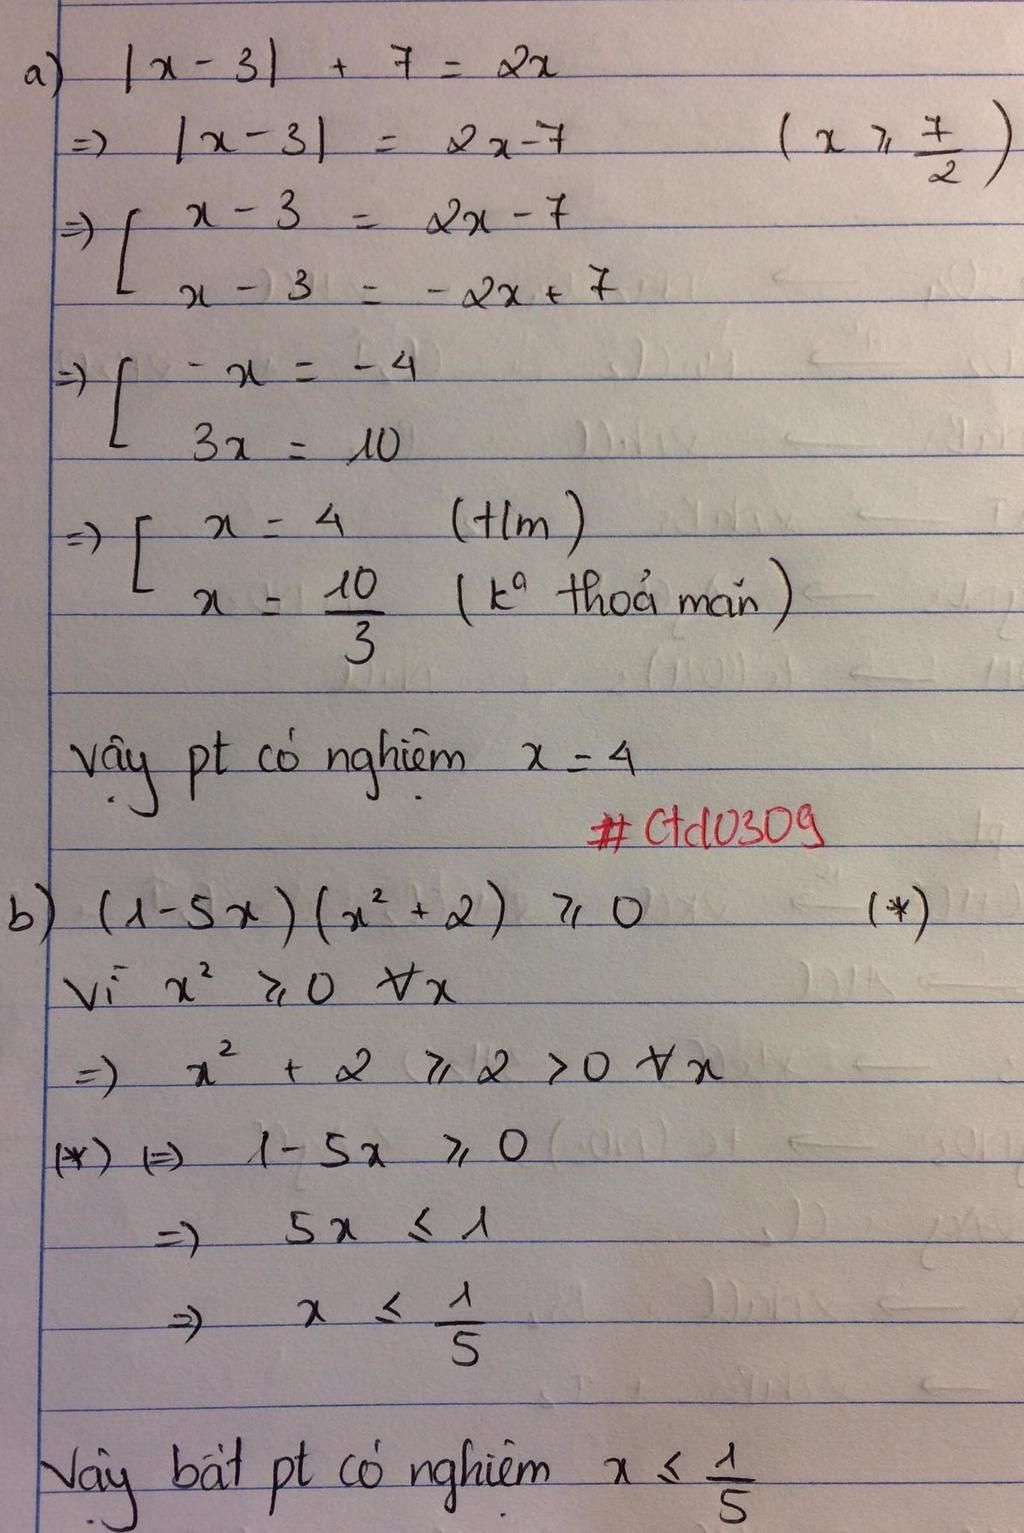 a) |x - 3| + 7 = 2x
=> |x - 3| = 2x - 7 (x ⩾ 7/2)
=> [ x - 3 = 2x - 7
x - 3 = - 2x + 7
=> [ - x = - 4
3x = 10
=> [ x = 4 (t/m)
x = 10/3 (kº thoả mãn)
Vậy pt có nghiệm x = 4
#Ctd0309
b) (1 - 5x)(x² + 2) ⩾ 0 (*)
Vì x² ⩾ 0 ∀x
=> x² + 2 ⩾ 2 > 0 ∀x
(*) (=> 1 - 5x ⩾ 0
=> 5x ≤ 1
=> x ≤ 1/5
Vậy bất pt có nghiệm x ≤ 1/5